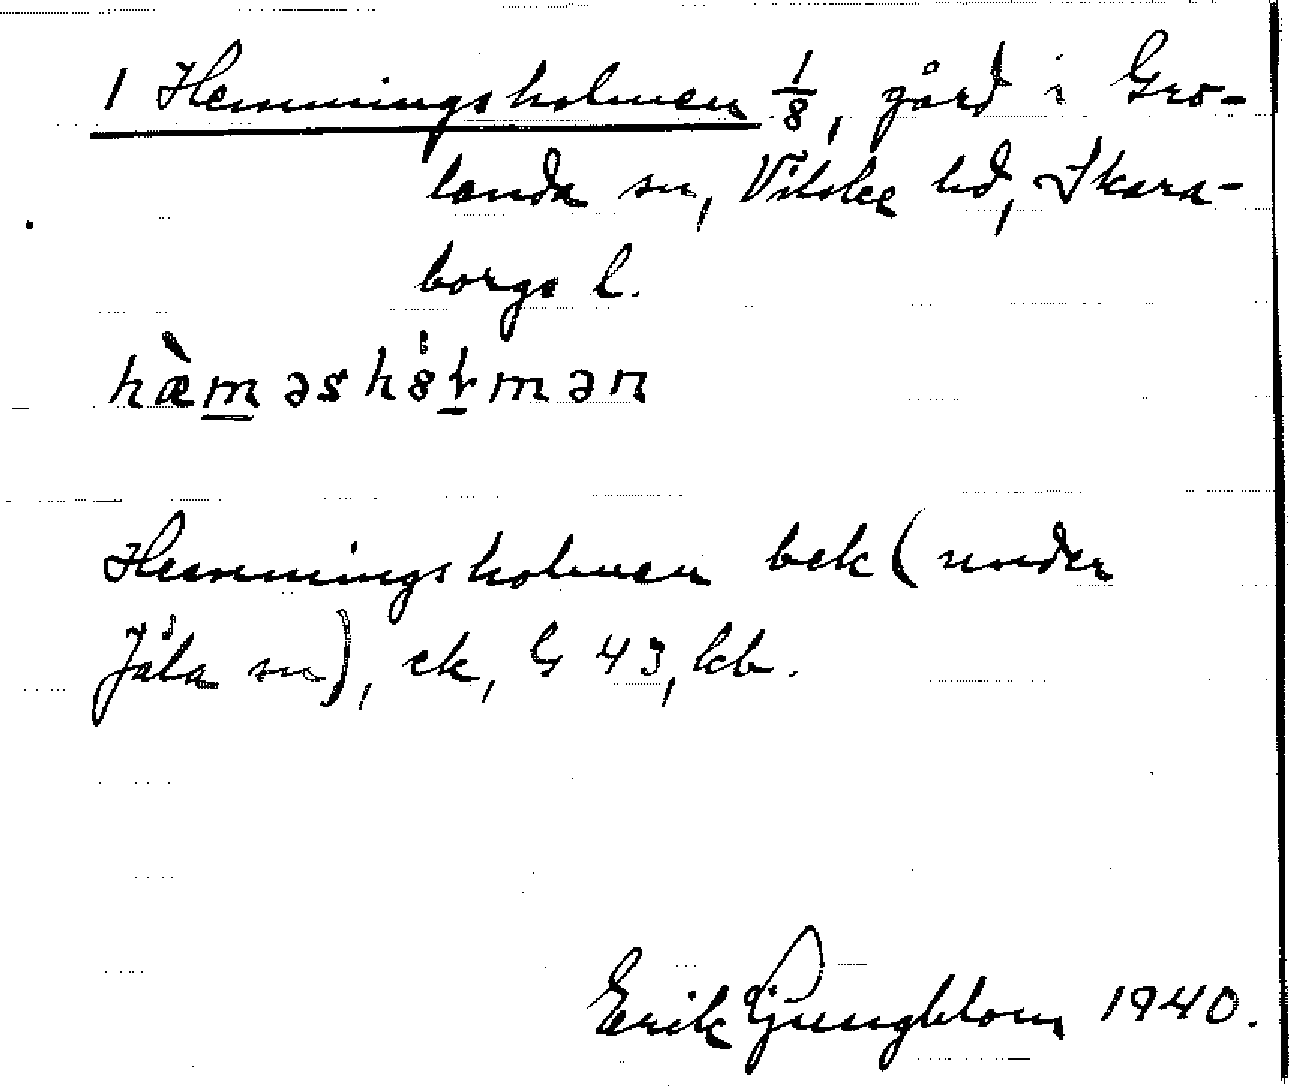 1 Hemmingsholmen 1/8, gård i Gro-
landa sn, Vilske hd, Skara-
borgs l.
hæ̀m̠əshȯ̀8ɫ̠mən
Hemmingsholmen bek (under
Jäla sn), ek, G 43, kb.
Erik Ljungblom 1940.